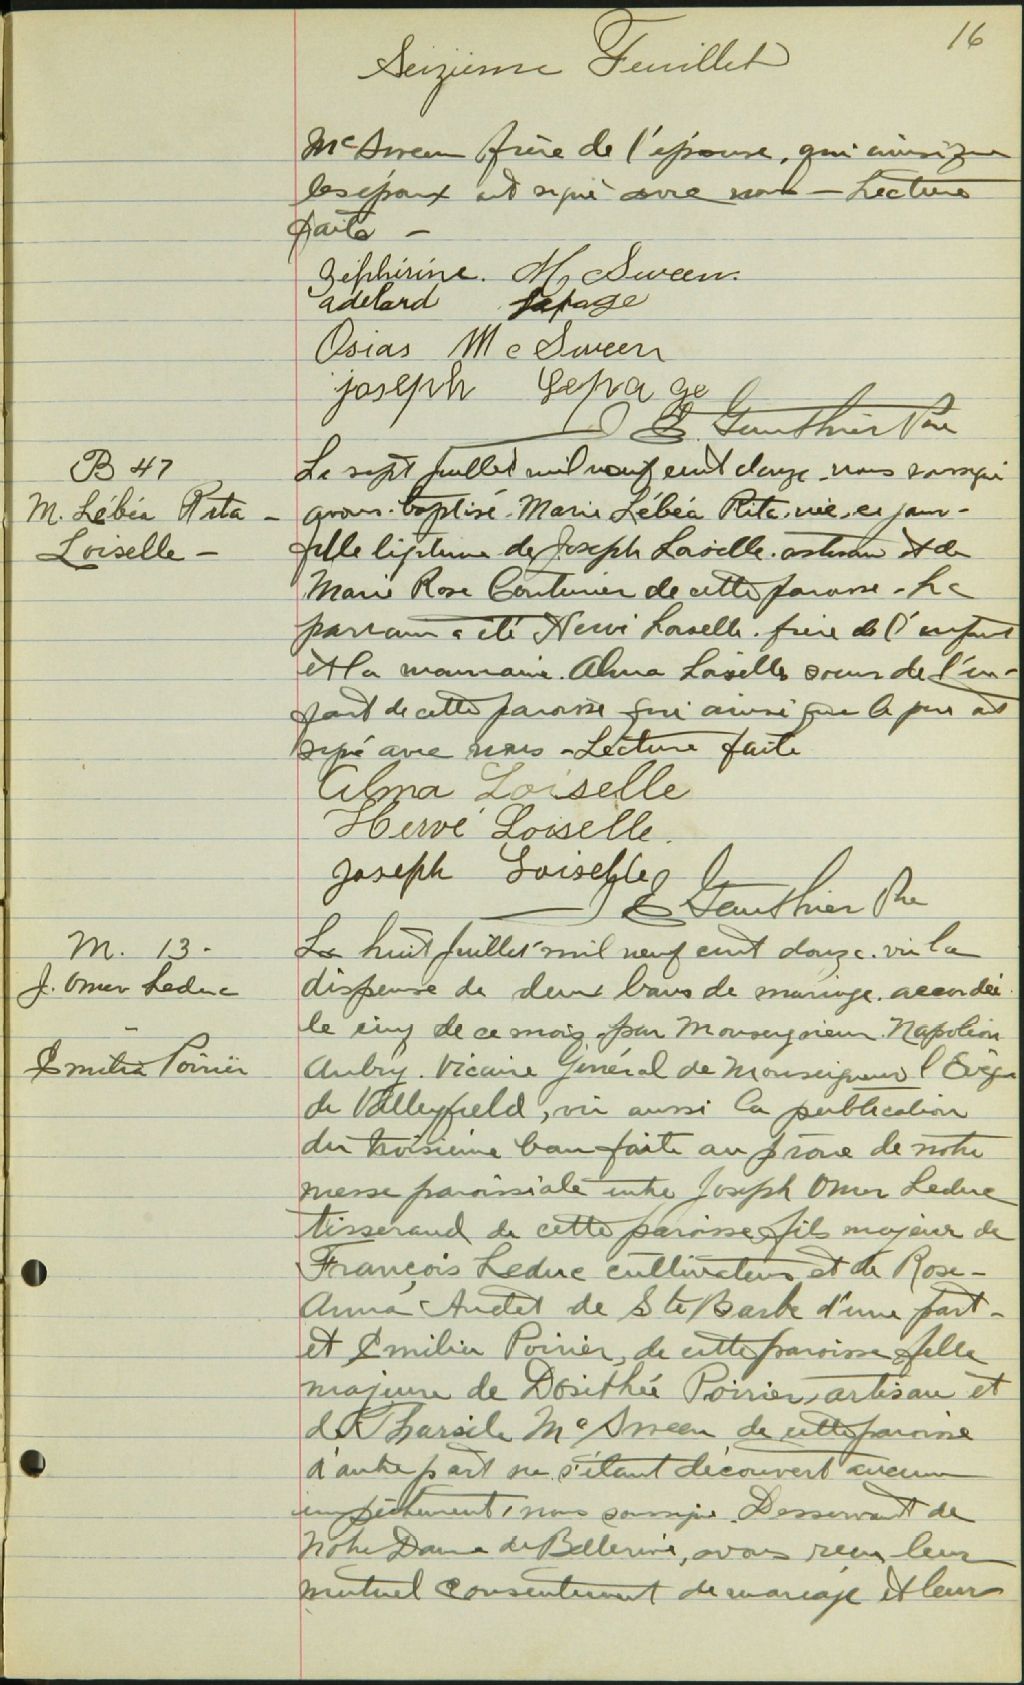 16
Seizieme Feuillet
McSween frère de l'épouse, qui ainsi que
les époux ont signé avec nous — Lecture
faite —
Zéphirine. Mc Sween.
adelard Lepage
Osias Mc Sween
joseph Lepage
E. Gauthier Ptre
B 47
M. Lébéa Rita —
Loiselle —
Le sept Juillet mil neuf cent douze, nous soussigné
avons baptisé Marie Lébéa Rita, née, ce jour-
fille légitime de Joseph Loiselle artisan et de
Marie Rose Couturier de cette paroisse - Le
parrain a été Hervé Loiselle frère de l'enfant
et la marraine Alma Loiselle soeur de l'en-
fant de cette paroisse qui ainsi que le père ont
signé avec nous - Lecture faite
Alma Loiselle
Hervé Loiselle.
Joseph Loiselle
E Gauthier Ptre
M. 13 -
J. Omer Leduc
-
Emilia Poirier
Le huit Juillet mil neuf cent douze. vu la
dispense de deux bans de mariage accordée
le cinq de ce mois par Monseigneur Napoléon
Aubry. Vicaire Général de Monseigneur l'Evêque
de Valleyfield, vu aussi la publication
du troisième ban faite au prône de notre
messe paroissiale entre Joseph Omer Leduc
tisserand de cette paroisse fils majeur de
François Leduc cultivateur et de Rose-
Anna Audet de Ste Barbe d'une part -
et Emilia Poirier, de cette paroisse fille
majeure de Dosithée Poirier, artisan et
de Tharsile McSween de cette paroisse
d'autre part ne s'étant découvert aucun
empêchement, nous soussigné Desservant de
Notre Dame de Bellerive, avons reçu leur
mutuel consentement de mariage et leur